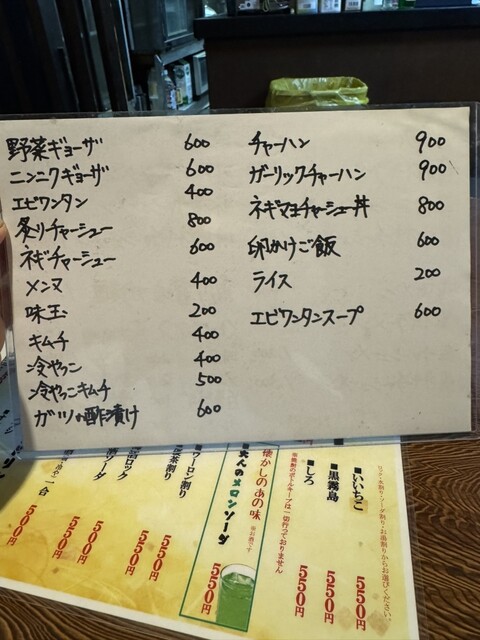 野菜ギョーザ 600
ニンニクギョーザ 600
エビワンタン 400
炙りチャーシュー 800
ネギチャーシュー 600
メンマ 400
味玉 200
キムチ 400
冷やっこ 400
冷やっこキムチ 500
ガツの酢漬け 600
チャーハン 900
ガーリックチャーハン 900
ネギマヨチャーシュー丼 800
卵かけご飯 600
ライス 200
エビワンタンスープ 600
リック・水割り・ソーダ割り・お湯割りからお選びください。
■いいちこ 550円
■黒霧島 550円
■しろ 550円
※焼酎のボトルキープは一切行っておりません
懐かしのあの味
※お酒です
■大人のメロンソーダ 550円
■ウーロン割り 550円
茶割り 550円
ロック 500円
ソーダ 500円
一合 500円